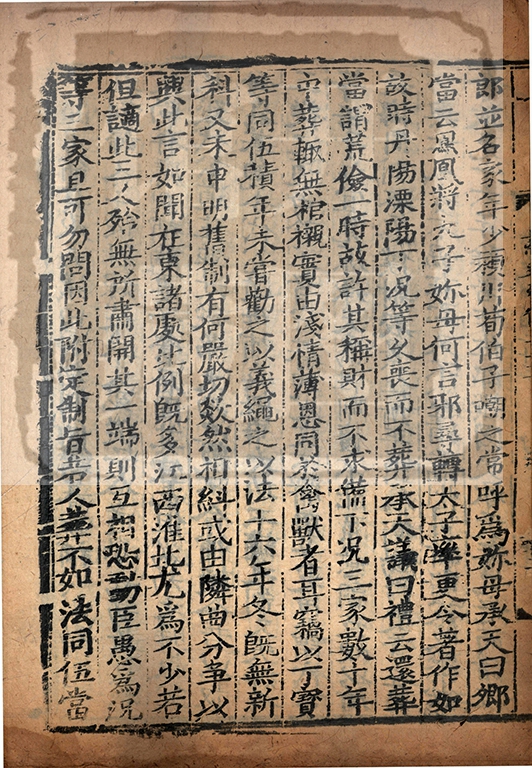 郎並名家年少潁川荀伯子嘲之常呼爲妳母承天曰卿
當云鳳凰將九子妳母何言邪尋轉太子率更令著作如
故時丹陽溧陽丁况等久喪而不葬承天議曰禮云還葬
當謂荒儉一時故許其稱財而不求備丁况三家數十年
中葬輒無棺櫬實由淺情薄恩同於禽獸者耳竊以丁寶
等同伍積年未嘗勸之以義繩之以法十六年冬旣無新
科又未申明舊制有何嚴切欻然相糾或由隣曲分爭以
興此言如聞在東諸處比例旣多江西淮北尤爲不少若
但謫此三人殆無所肅開其一端則互相恐動臣愚爲况
等三家且可勿問因此附定制旨若人葬不如法同伍當